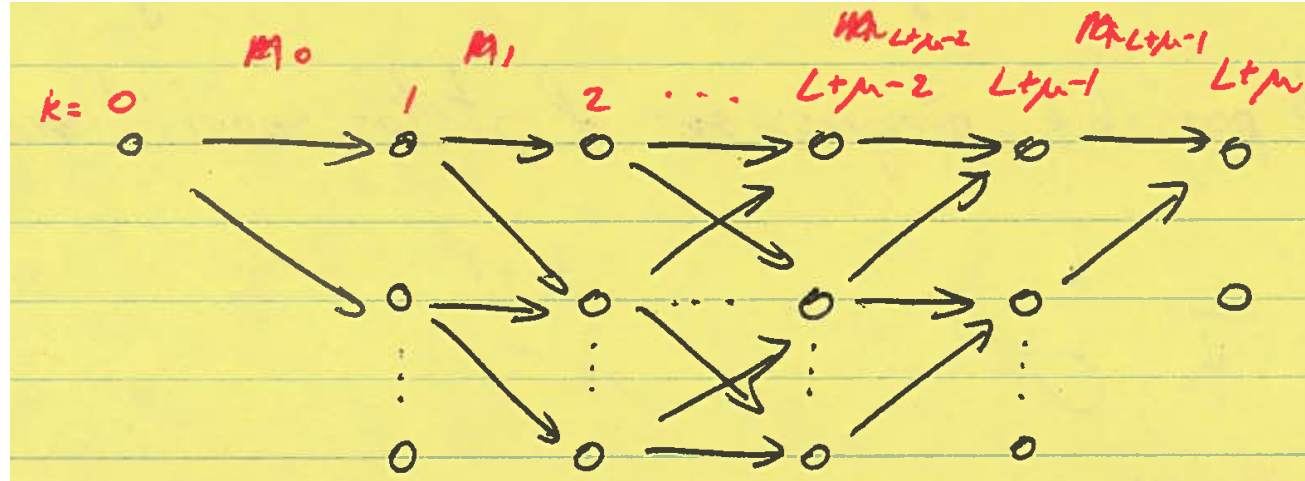 m₀ m₁ m_{L+μ-2} m_{L+μ-1}
k= 0 1 2 ... L+μ-2 L+μ-1 L+μ